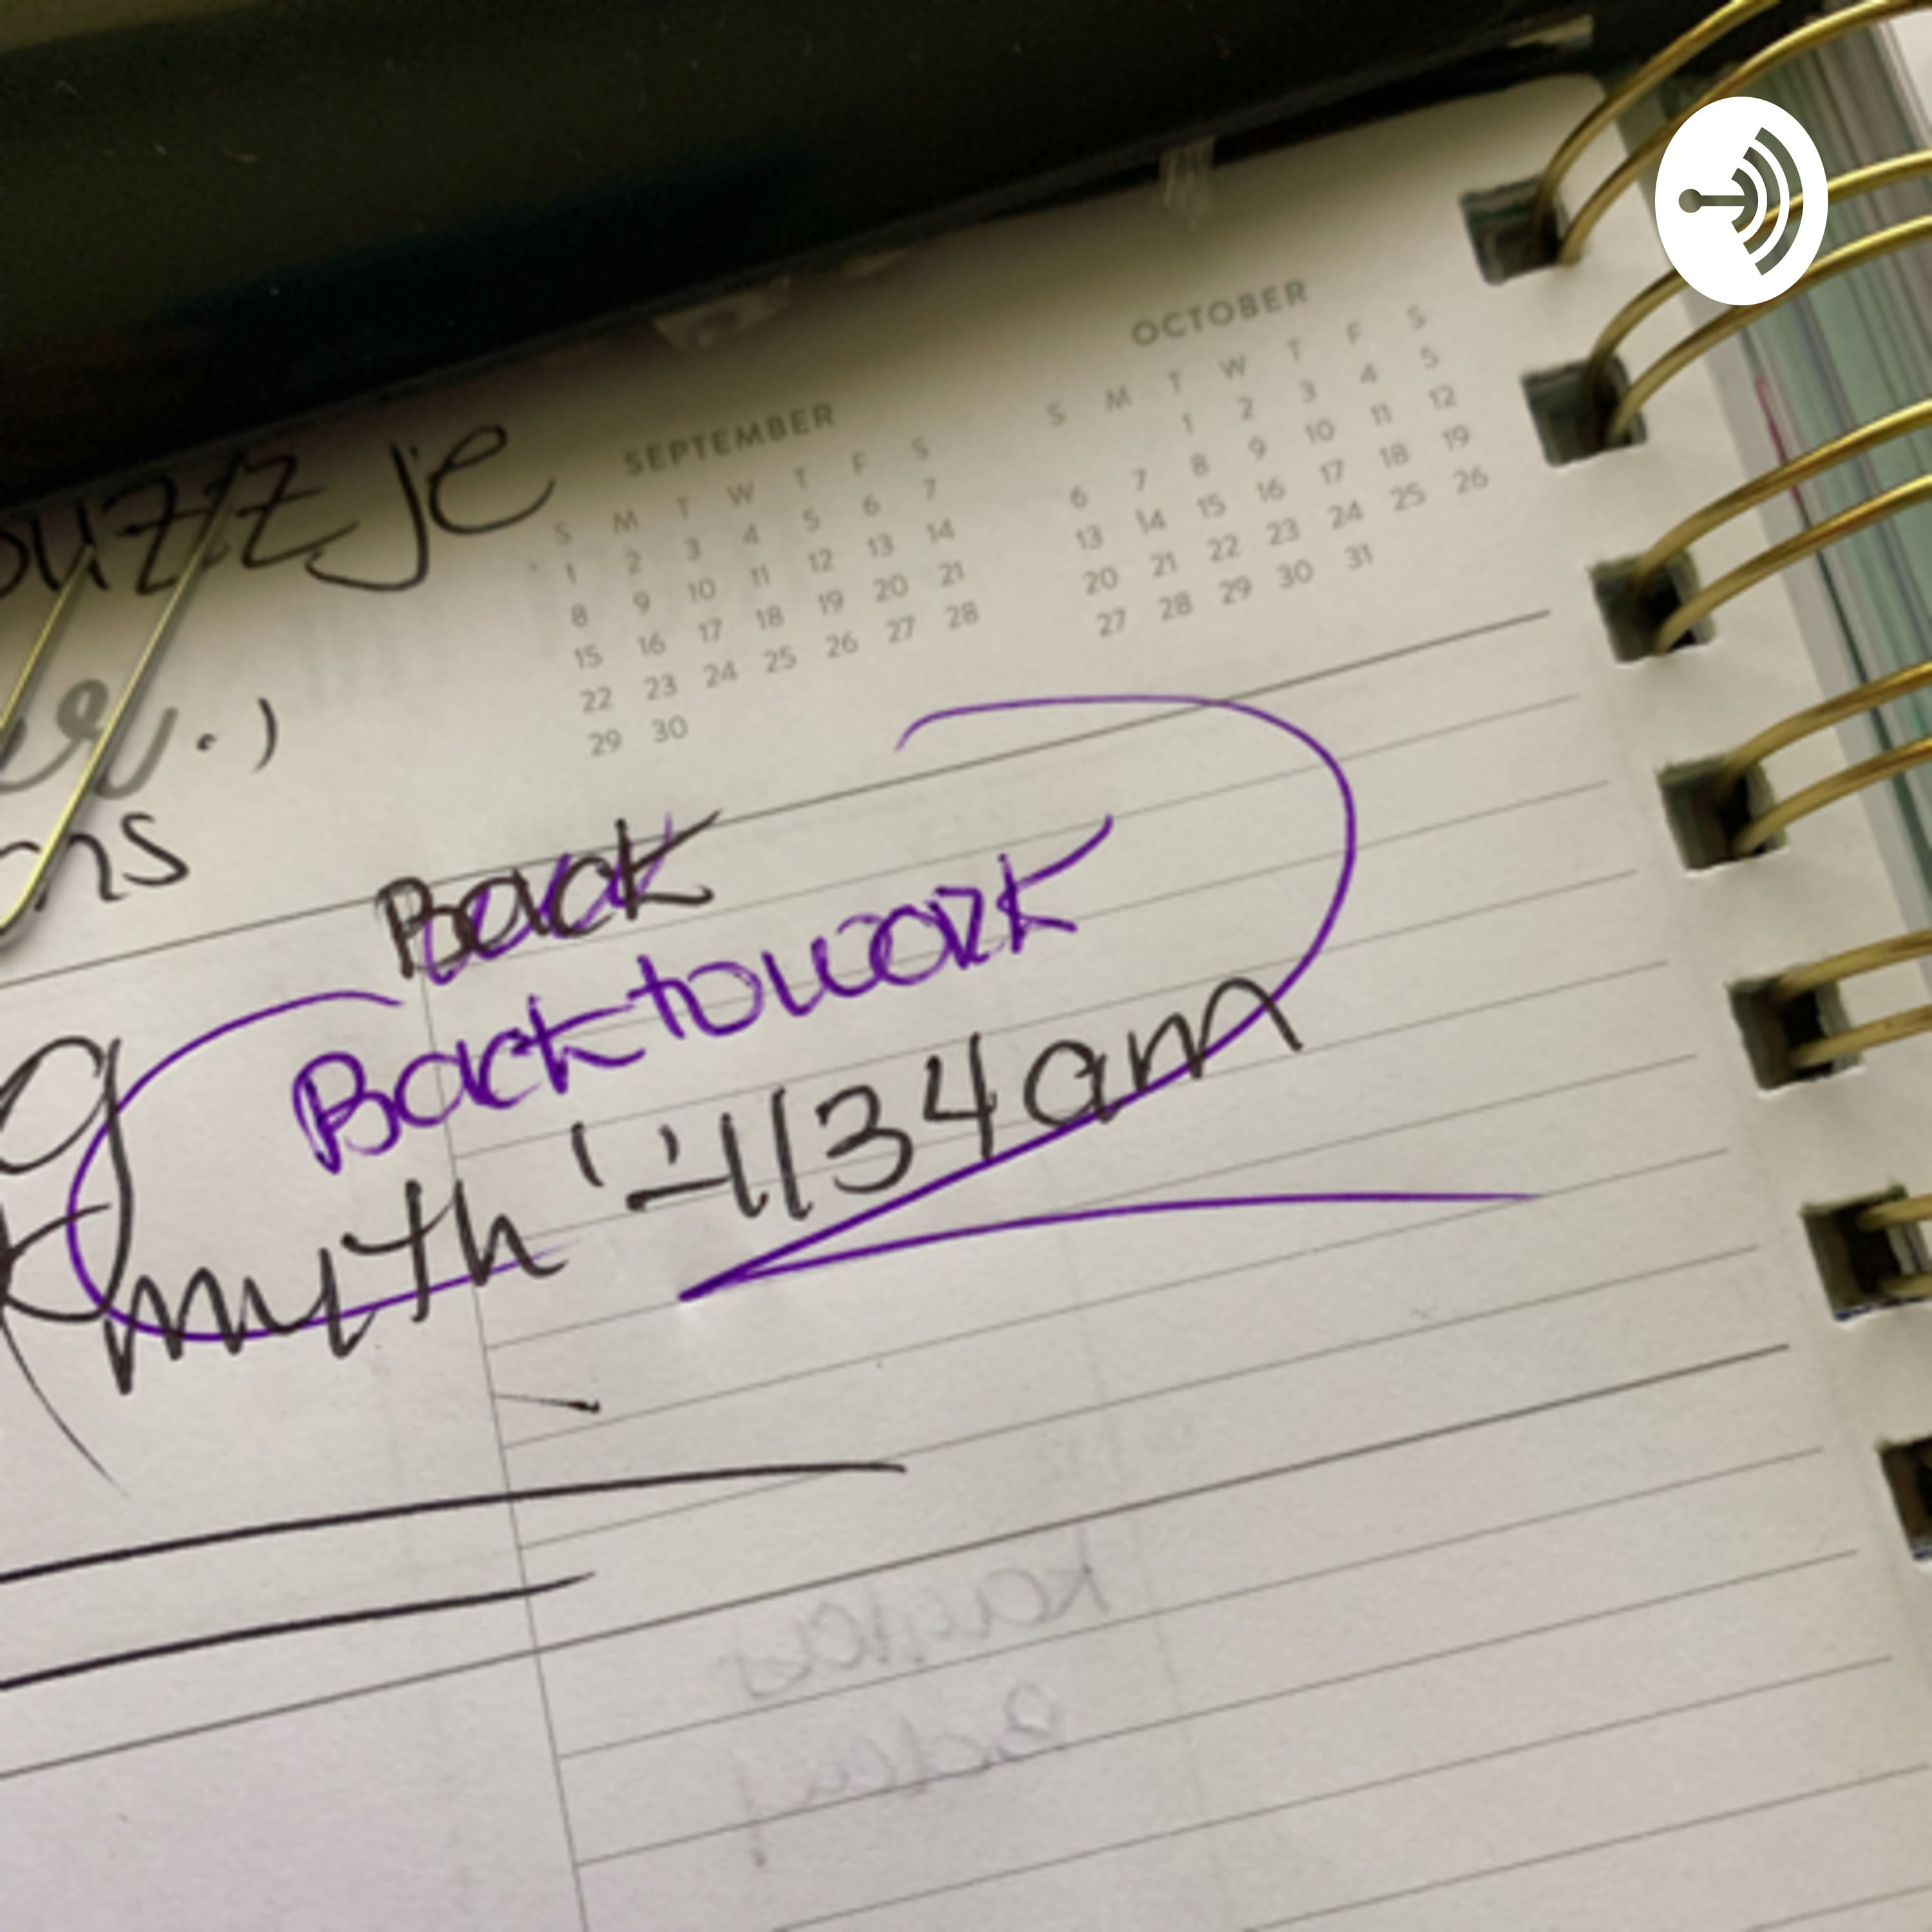 SEPTEMBER
S M T W T F S
1 2 3 4 5 6 7
8 9 10 11 12 13 14
15 16 17 18 19 20 21
22 23 24 25 26 27 28
29 30
OCTOBER
S M T W T F S
1 2 3 4 5
6 7 8 9 10 11 12
13 14 15 16 17 18 19
20 21 22 23 24 25 26
27 28 29 30 31
Back
Back to work
myth
34am